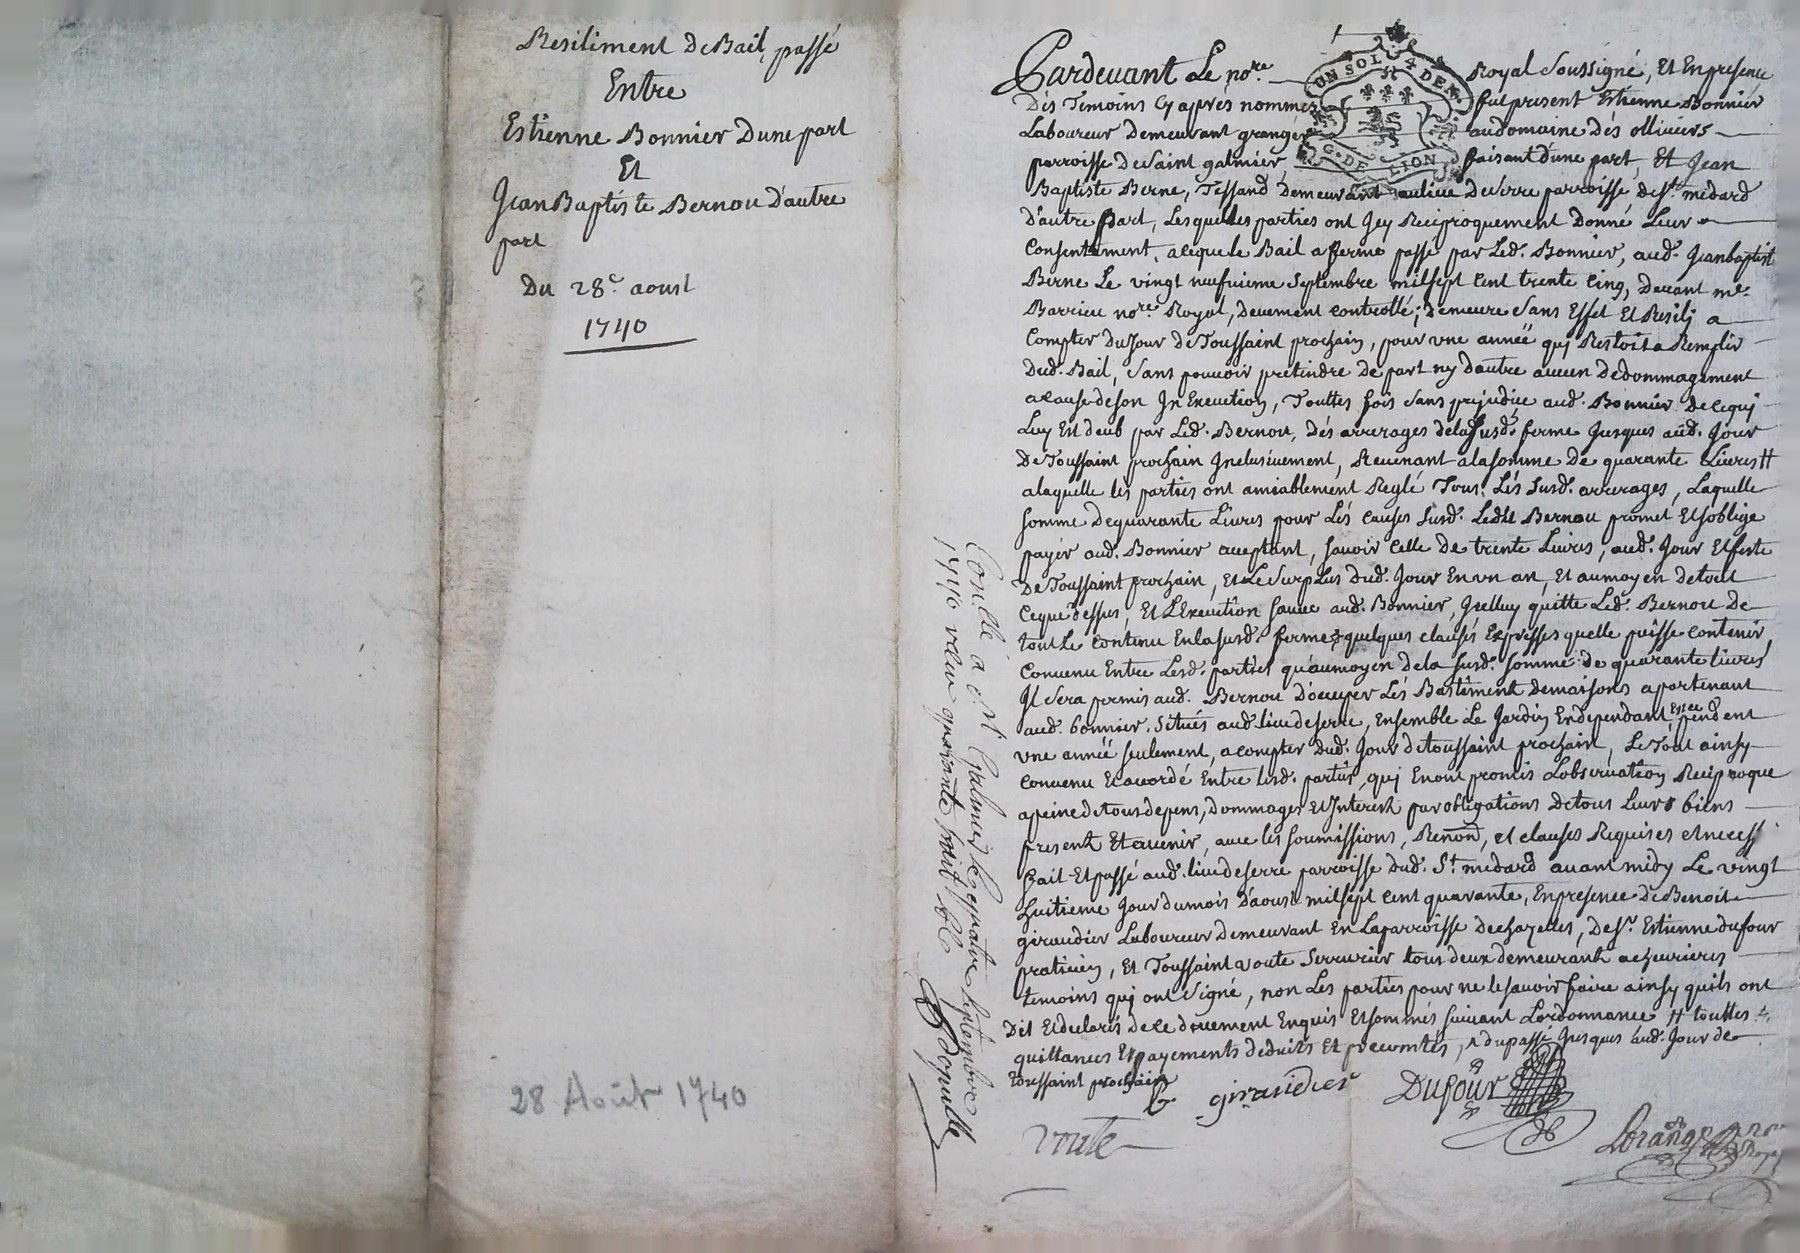 Resiliment De Bail passé
Entre
Estienne Bonnier Dune part
Et
Jean Baptiste Bernou D'autre
part
Du 28e aoust
1740
28 Août 1740
Pardevant Le nore Royal Soussigné, Et En presence
Dés Temoins Cy aprés nommez fut present Estienne Bonnier
Laboureur demeurant granger au domaine dés olliviers
parroisse de Saint galmier, faisant d'une part, Et Jean
UN SOL 4 DEN.
G. DE LION
Baptiste Berne, Tissand demeurant au lieu de Serre parroisse de St. medard
D'autre Part, Lesquelles parties ont Jcy Reciproquement Donné Leur
Consentement, a ceque le Bail a ferme passé par Led. Bonnier, aud. Jean baptiste
Berne Le vingt neufvieme Septembre mil sept Cent trente Cinq, Devant me.
Barrieu nore Royal, Deuement controllé; demeure Sans Effet Et Resily a
Compter du Jour de Toussaint prochain, pour vne année quj Restoit a Remplir
Dud. Bail, Sans pouvoir pretendre de part ny d'autre aucun Dedommagement
a Cause de son JnExecution, Touttes fois Sans prejudice aud. Bonnier de Cequj
Luy Est deub par Led. Bernou, Dés arrerages de la Susd. ferme Jusques aud. Jour
De Toussaint prochain Jnclusivement, Revenant a la somme de quarante Livres #
a laquelle les parties ont amiablement Reglé Tous Lés Susd. arrerages, Laquelle
somme De quarante Livres pour Lés Causes Susd. Ledit Bernou promet Et s'oblige
payér aud. Bonnier acceptant, savoir Celle de trente Livres, aud. Jour Et feste
De Toussaint prochain, Et Le Surplus dud. Jour En un an, Et au moyen de tout
Ceque dessus, Et L'Execution sauve aud. Bonnier, Jcelluy quitte Led. Bernou De
tout Le Contenu En la Susd. ferme & quelques clauses Expresses quelle puisse contenir
Convenu Entre Lesd. parties qu'au moyen de la Susd. Somme de quarante livres
Jl Sera permis aud. Bernou D'occuper Lés Bastiment de maisons apartenant
aud. Bonnier. Situés aud. lieu de serre, Ensemble Le Jardin En dependant, pendent
vne année seulement, a compter dud. Jour de toussaint prochain, Le Tout ainsy
Convenu Et acordé Entre lesd. parties, quj En ont promis L'observation Reciproque
a peine de tous depens, Dommages Et Jnterest par obligations De tous Leurs biens
present Et avenir, avec les soumissions, Renon, et clauses Requises et necess
fait Et passé aud. lieu de serre parroisse Dud. St. medard avant midy Le vingt
huitieme Jour du mois D'aoust mil sept Cent quarante, En presence De Benoit
giraudier Laboureur demeurant En La parroisse de chazelles, De Sr. Estienne dufour
praticien, Et Toussaint voute Serrurier tous deux demeurant a chevrieres
temoins quj ont Signé, non Les parties pour ne le savoir faire ainsy quils ont
Dit Et declarés de Ce deuement Enquis Et sommés suivant L'ordonnance # touttes
quittances Et payements deduits Et precomtés, du passé Jusques aud. Jour de
toussaint prochain
giraudier
Dufour
voute
Conllé a St Galmier le quatre septembre
1740 recu quarante huit sols